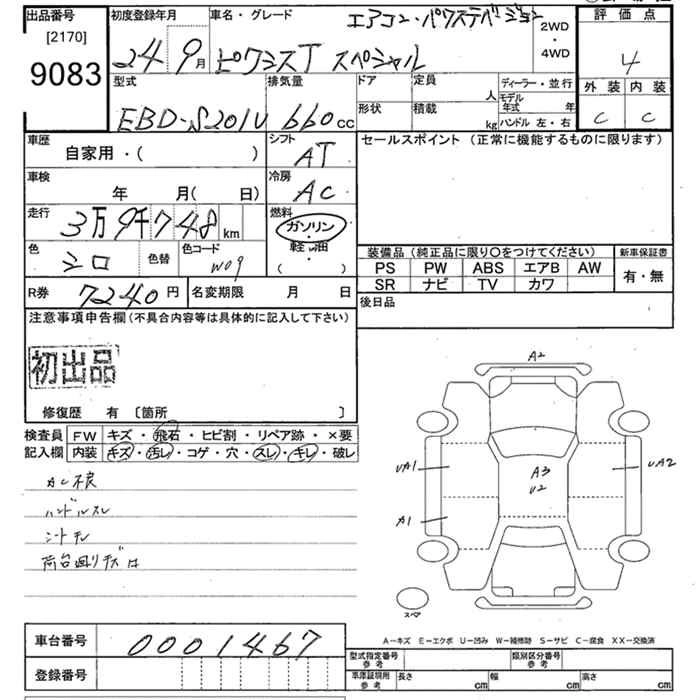 出品番号
[2170]
9083
初度登録年月
24 9月
車名・グレード
エアコン・パワステバージョン
ピクシスT スペシャル
2WD
・
4WD
評価点
4
外装 内装
C C
型式
EBD-S201U
排気量
660 cc
ドア
定員
人
形状
積載
kg
ディーラー・並行
モデル年式 年
ハンドル 左・右
車歴
自家用・( )
シフト
AT
車検
年 月( 日)
冷房
AC
走行
3万9千748 km
燃料
ガソリン
・
軽油
( )
色
シロ
色替
色コード
W09
R券 7240円
名変期限 月 日
セールスポイント (正常に機能するものに限ります)
装備品(純正品に限り○をつけてください)
PS PW ABS エアB AW
SR ナビ TV カワ
新車保証書
有・無
後日品
注意事項申告欄(不具合内容等は具体的に記入して下さい)
初出品
修復歴 有 〔箇所 〕
検査員
記入欄
FW キズ・飛石・ヒビ割・リペア跡・×要
内装 キズ・汚レ・コゲ・穴・スレ・キレ・破レ
AC不良
ハンドルスレ
シートキレ
荷台廻りキズ凹
A2
UA1
A3
U2
UA2
A1
スペア
A-キズ E-エクボ U-凹み W-補修跡 S-サビ C-腐食 XX-交換済
車台番号 0001467
登録番号
型式指定番号
参考
類別区分番号
参考
車庫証明用
参考
長さ cm
幅 cm
高さ cm